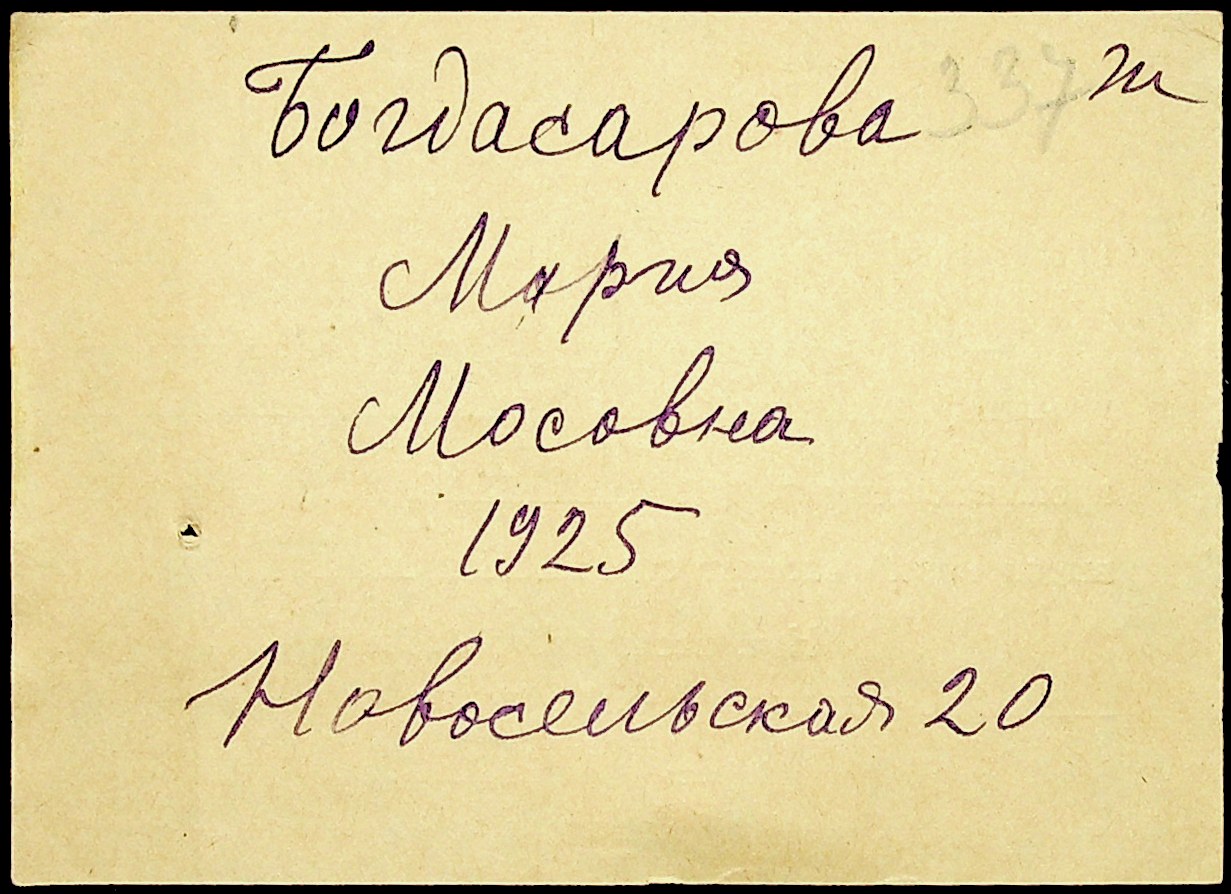 Богдасарова 337 т
Мария
Мосовна
1925
Новосельская 20